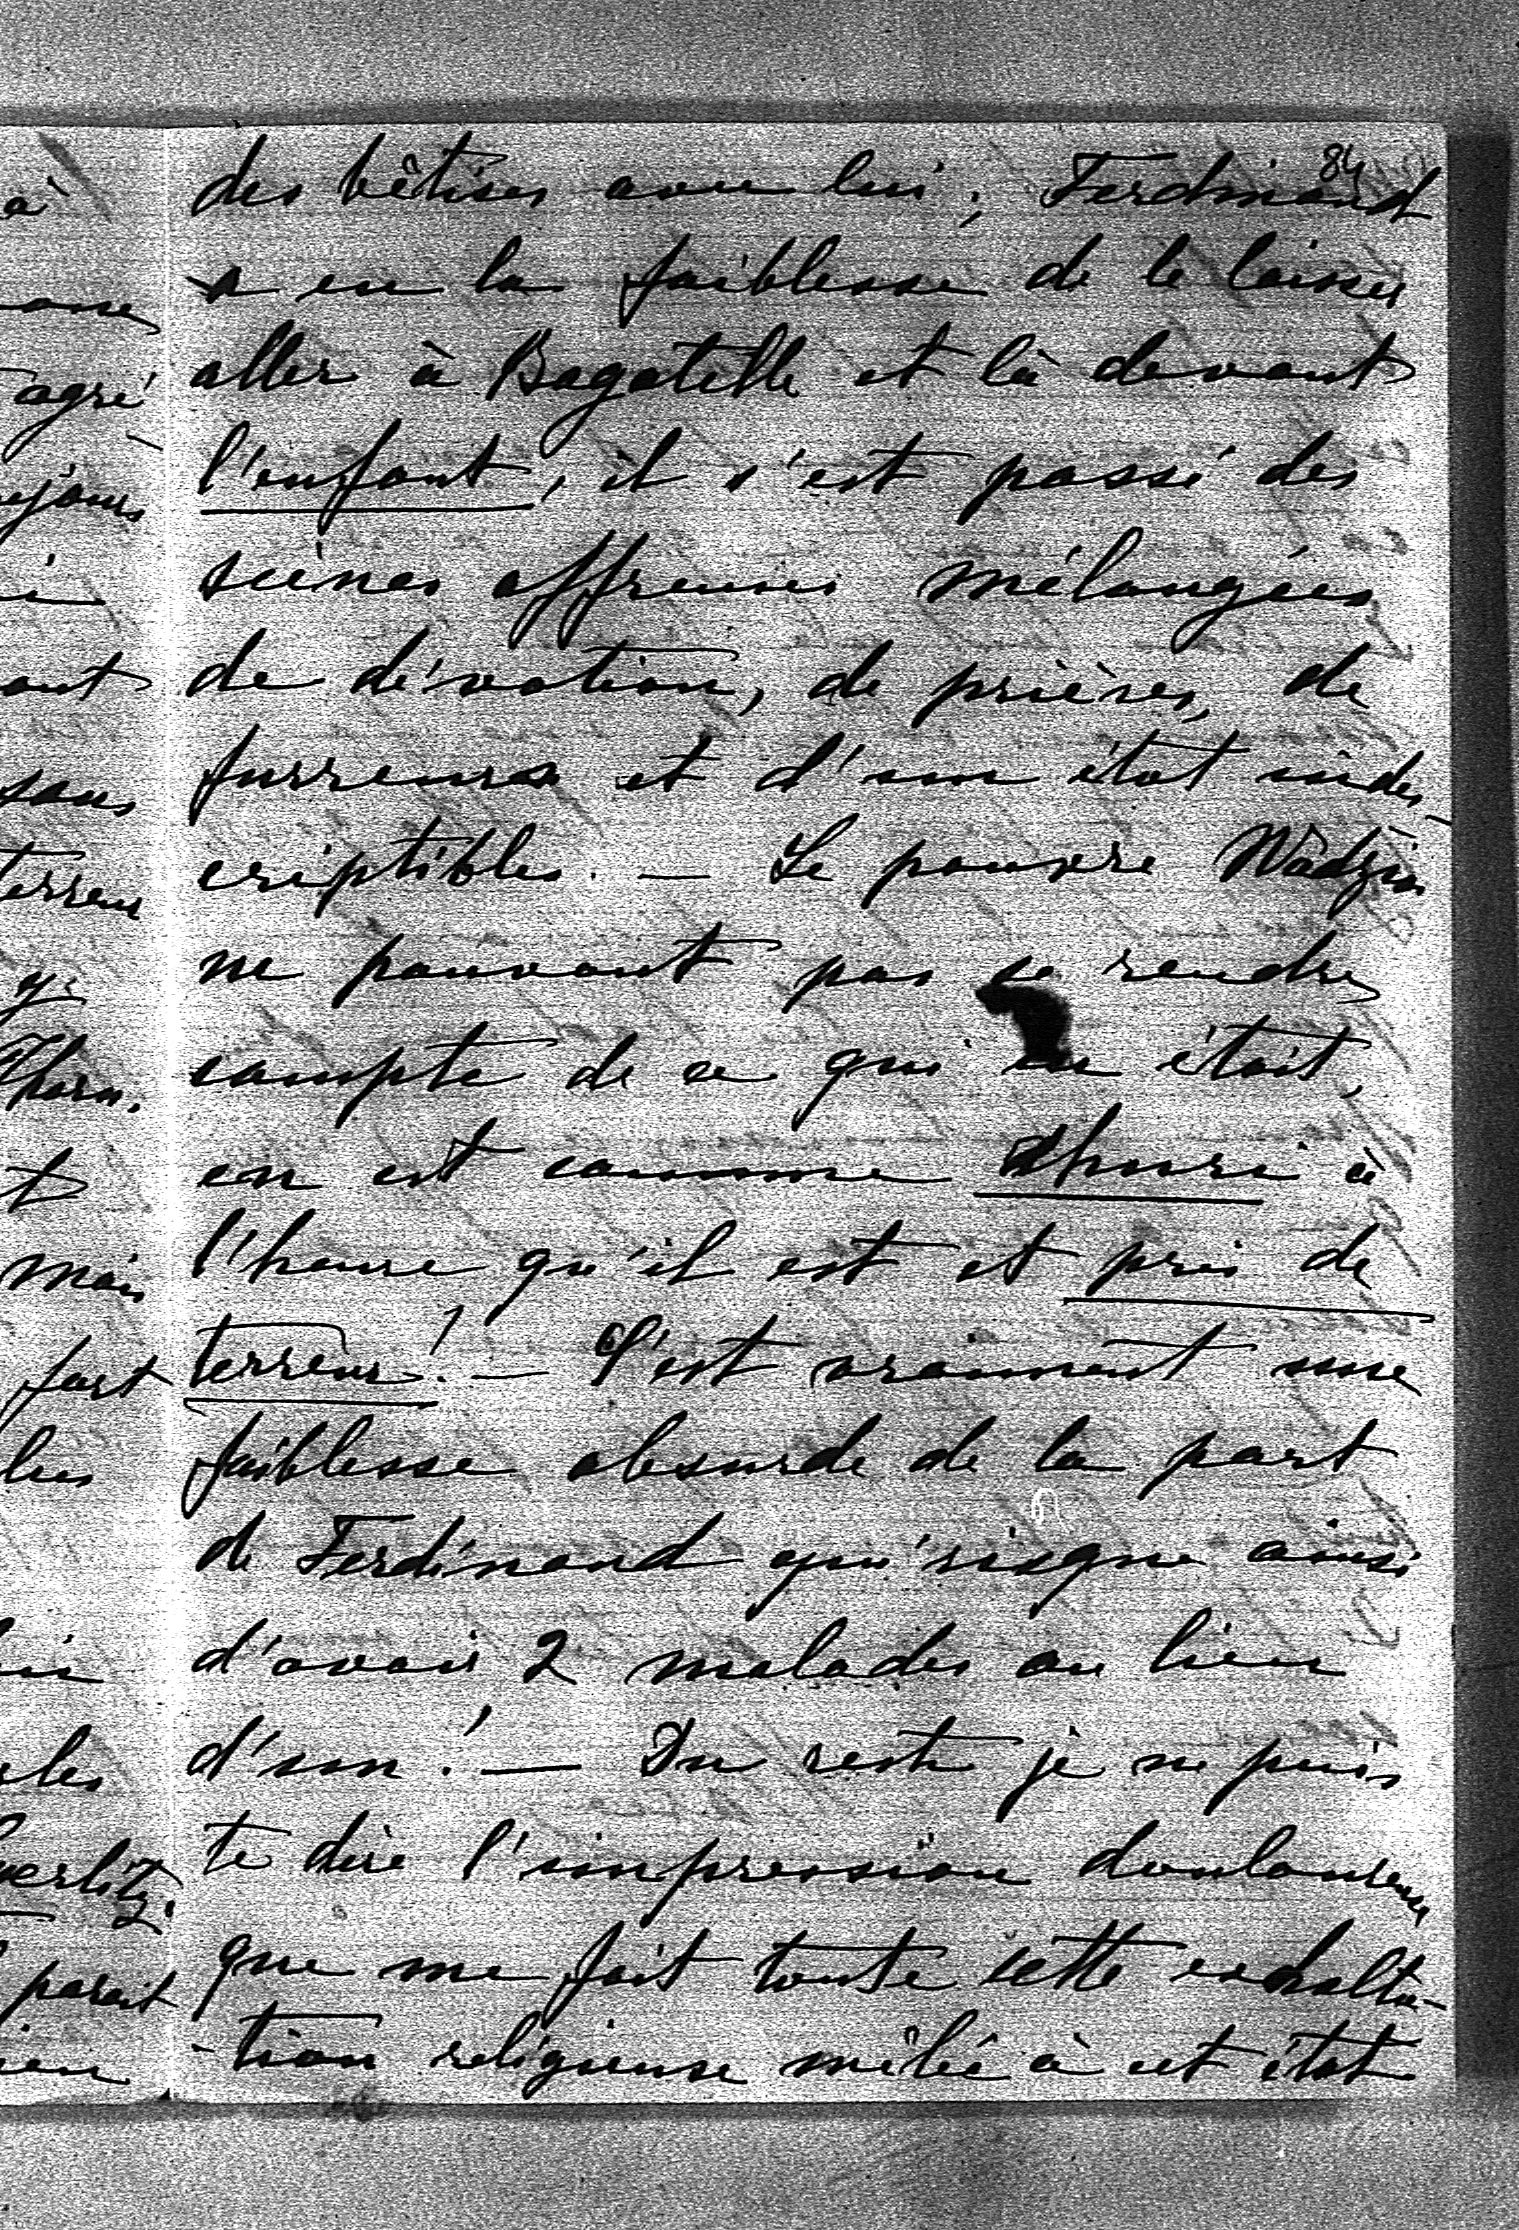 84
des bêtises avec lui; Ferdinand
a eu la faiblesse de le laisser
aller à Bagatelle et là devant
l'enfant, il s'est passé des
scènes affreuses mélangées
de dévotion, de prières, de
furreurs et d'un état indes-
criptibles. — Le pauvre Wadzin
ne pouvant pas se rendre
compte de ce qui en était,
en est comme ahuri à
l'heure qu'il est et pris de
terreur! — C'est vraiment une
faiblesse absurde de la part
de Ferdinand qui risque ainsi
d'avoir 2 malades au lieu
d'un! — Du reste je ne puis
te dire l'impression douloureuse
que me fait toute cette exhalta-
-tion religieuse mêlé à cet état
à
agré
ujours
ont
sans
terreur
y
Thorn.
t
mais
fort
les
paroit